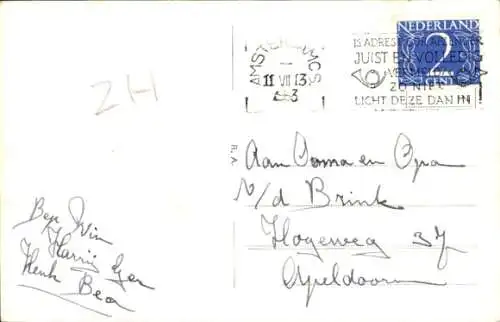 ZH
AMSTERDAM CS
11 VII 13
1953
IS ADRESSERING
JUIST EN VOLLEDIG
ZO NIET
LICHT DEZE DAN IN!
NEDERLAND
2
CENT
E.A.
Aan Oma en Opa
v/d Brink
Hogeweg 37
Apeldoorn
Bep Wim
Harry Ger
Henk Bea